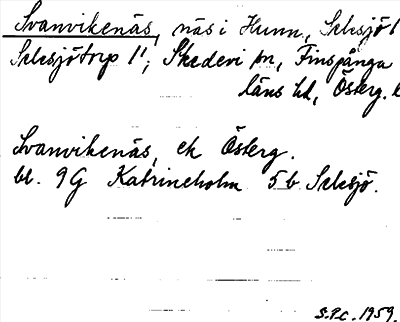 Svanvikenäs, näs i Hunn, Selesjö 1
Selesjötorp 1¹; Skedevi sn, Finspånga
läns hd, Österg. l
Svanvikenäs, ek Österg.
bl. 9G Katrineholm 5 b Selesjö.
S.P.C. 1959.